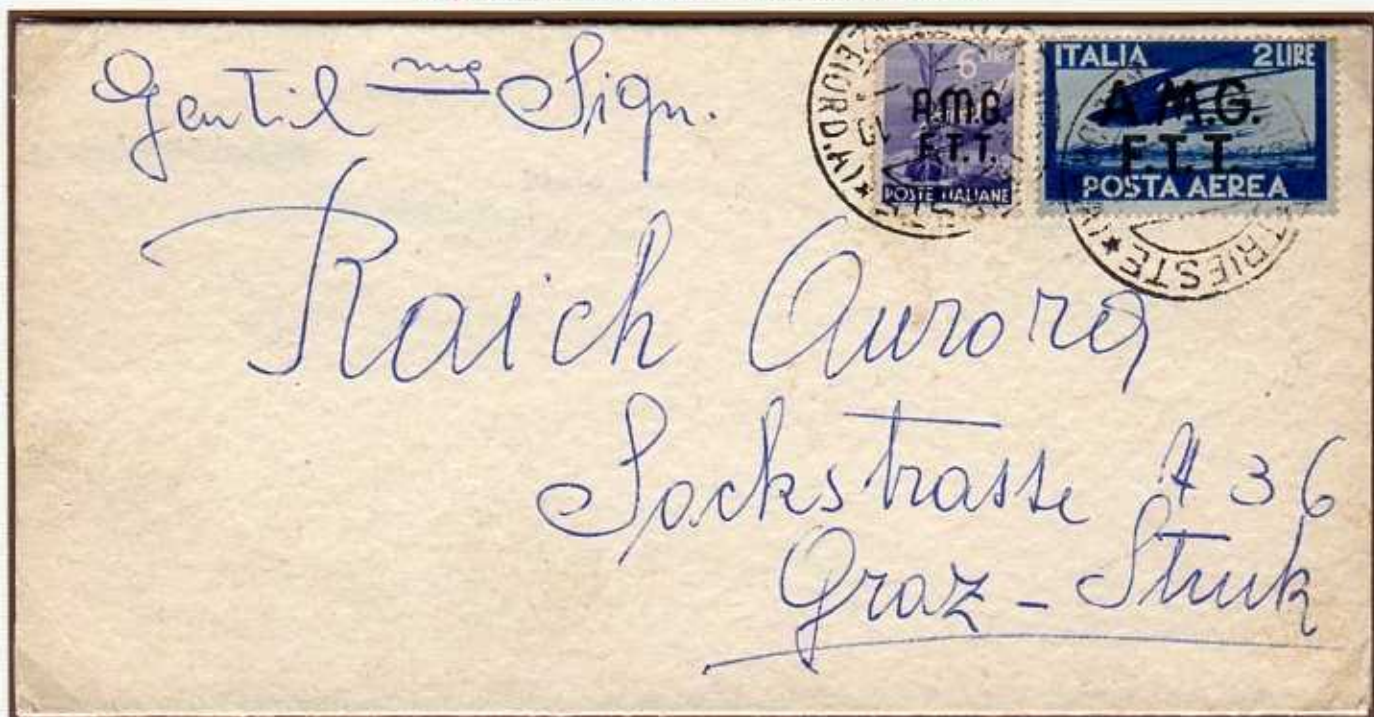 Gentil ma Sign.
Raich Aurora
Sackstrasse # 36
Graz - Stuk
6 LIRE
A.M.G.
F.T.T.
POSTE ITALIANE
ITALIA 2 LIRE
A.M.G.
F.T.T.
POSTA AEREA
TRIESTE